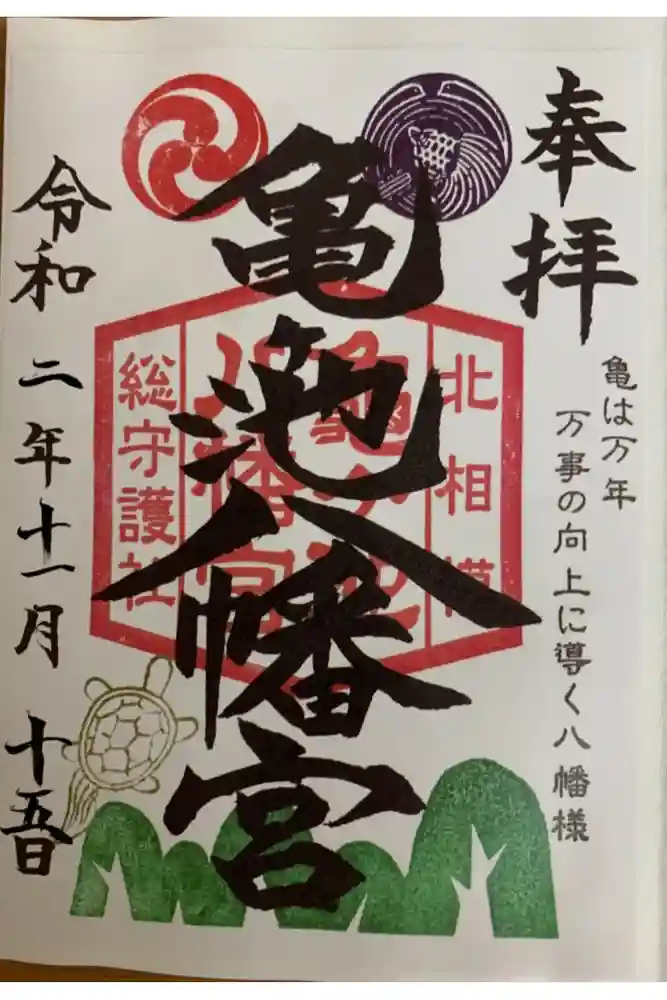 奉拝
亀は万年
万事の向上に導く八幡様
亀池八幡宮
北相模
亀ヶ池
八幡宮
総守護社
令和二年十一月十五日